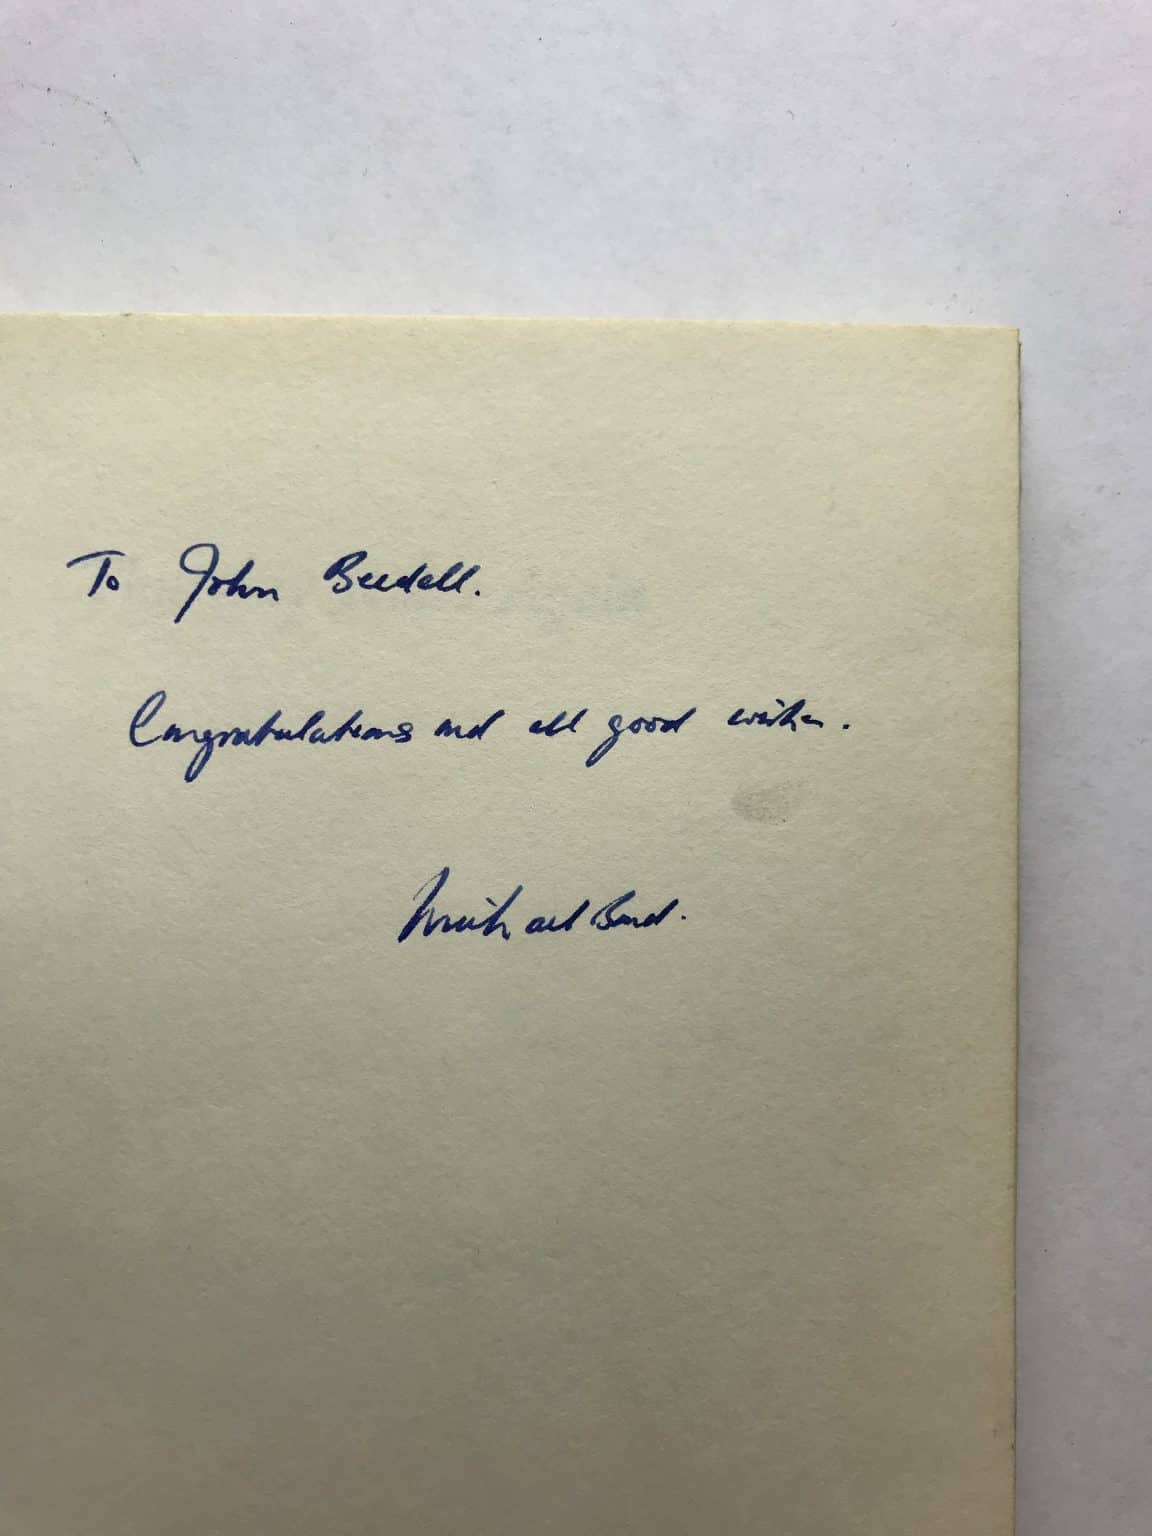 To John Beedell.
Congratulations and all good wishes.
Michael Bond.